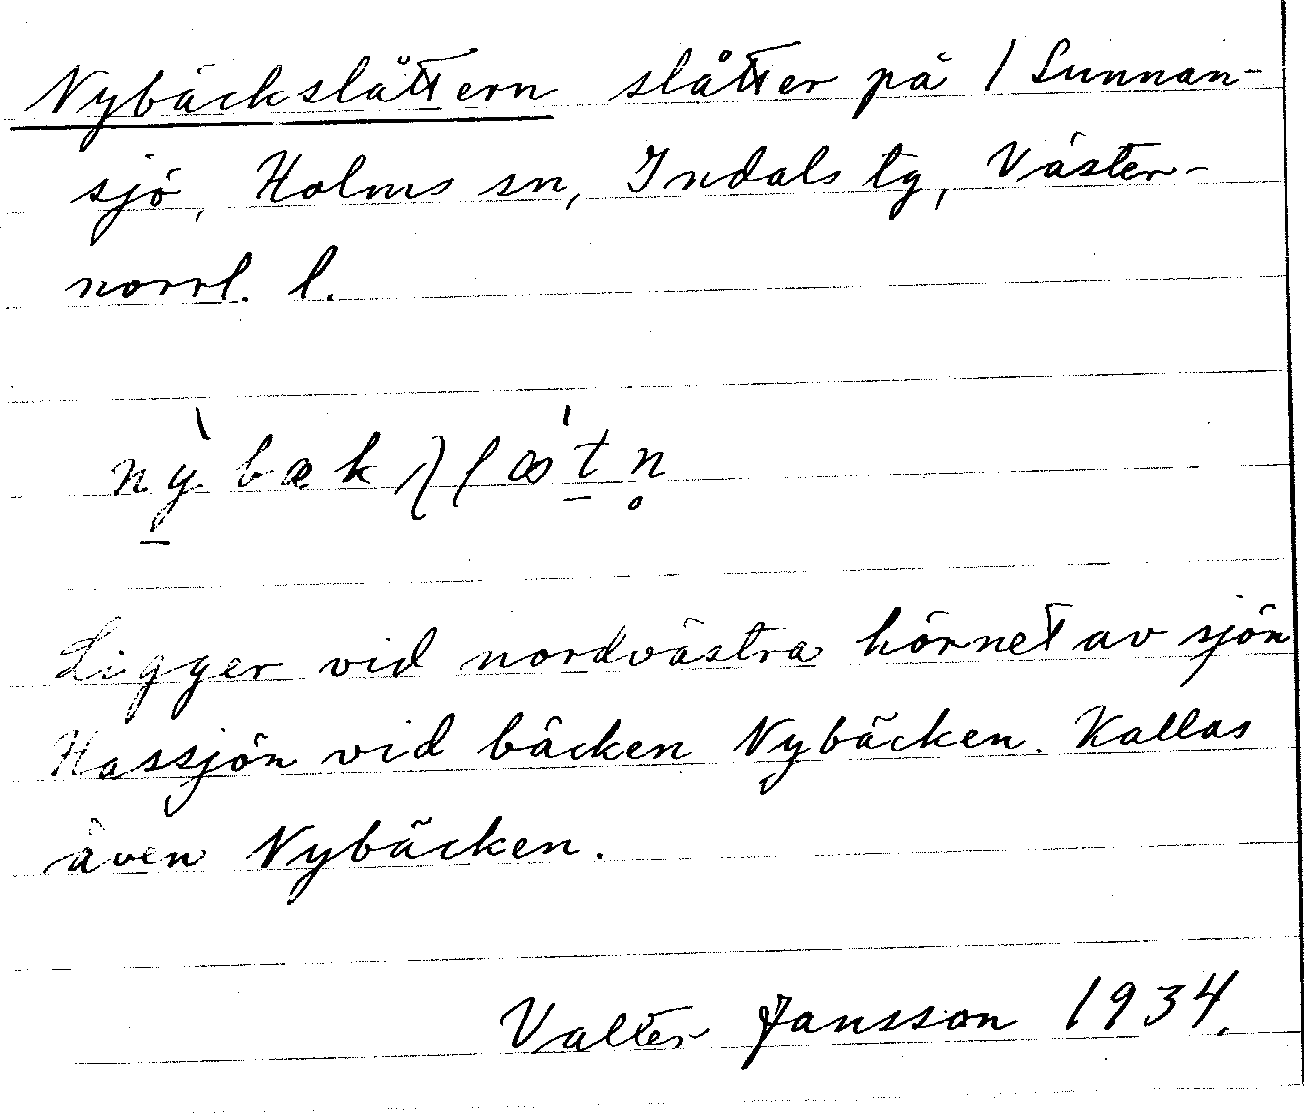 Nybäckslåttern slåtter på 1 Sunnan-
sjö, Holms sn, Indals tg, Väster-
norrl. l.
Ligger vid nordvästra hörnet av sjön
Hassjön vid bäcken Nybäcken. Kallas
även Nybäcken.
Valter Jansson 1934.